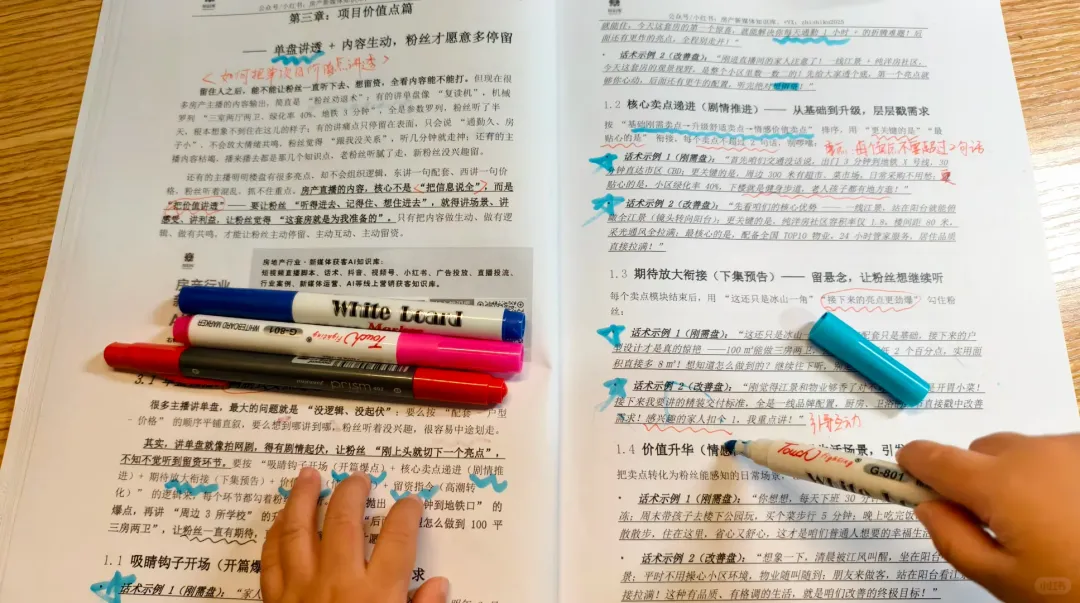 公众号/小红书:房产新媒体知识库
第三章:项目价值点篇
—— 单盘讲透 + 内容生动,粉丝才愿意多停留
留住人之后,能不能让粉丝一直听下去、想留资,全看内容能不能打。但现在很
多房产主播的内容输出,简直是“粉丝劝退术”:有的讲单盘像“复读机”,机械
罗列“三室两厅两卫,绿化率 40%、地铁 3 分钟”,全是参数罗列,粉丝听了半
天,根本想象不到住在这儿的样子;有的讲痛点只停留在表面,只会说“通勤久、房
子小”、不会放大情绪共鸣,粉丝觉得“跟我没关系”,听几分钟就走神;还有的主
播内容枯竭、播来播去都是那几个知识点,老粉丝听腻了走,新粉丝没兴趣留。
还有的主播明明楼盘有很多亮点,却不会组织逻辑、东讲一句配套、西讲一句价
格,粉丝听着混乱,抓不住重点。房产直播的内容,核心不是“把信息说全”,而是
“把价值讲透”—— 要让粉丝“听得进去、记得住、想住进去”,就得讲场景、讲
感受、讲利益,让粉丝觉得“这套房就是为我准备的”。只有把内容做生动、做有逻
辑、做有共鸣,才能让粉丝主动停留、主动互动、主动留资。
房地产行业·新媒体获客AI知识库:
短视频直播脚本、话术、抖音、视频号、小红书、广告投放、直播投流、
行业案例、新媒体运营、AI等线上营销获客知识库。
房产行业
White Board
Marker
Touch
WHITEBOARD MARKER G-801
prism
3.1
很多主播讲单盘,最大的问题就是“没逻辑、没起伏”:要么按“配套 户型
价格”的顺序平铺直叙,要么想到哪讲到哪,粉丝听着没兴趣,很容易中途划走。
其实,讲单盘就像拍网剧,得有剧情起伏,让粉丝“刚上头就切下一个亮点”,
不知不觉听到留资环节。要按“吸睛钩子开场(开篇爆点)+ 核心卖点递进(剧情推
进)+ 期待放大衔接(下集预告)+ 价值 + 留资指令(高潮转
化)”的逻辑来,每个环节都勾着粉丝 抛出 钟到地铁口”的
爆点,再讲“周边 3 所学校”的 “后面 怎么做到 100 平
三房两卫”,让粉丝一直有期待,
1.1 吸睛钩子开场(开篇爆 求
话术示例 1(刚需盘):“家人
公众号/小红书:房产新媒体知识库,
就能住,今天这套房的第一个惊喜,就能解决你每天通勤 1 小时 + 的折腾难题!后
面还有更炸的亮点,全程别走开!”
· 话术示例 2(改善盘):“刚进直播间的家人注意了!一线江景 + 纯洋房社区,
今天这套房的观景视野,是整个小区里数一数二的!先给大家透个底,第一个亮点就
够你心动,后面还有更牛的配置,听完绝对
1.2 核心卖点递进(剧情推进)—— 从基础到升级,层层戳需求
按“基础刚需卖点→升级舒适卖点→情感价值卖点”排序,用“更关键的是”“最
贴心的是”衔接,每个卖点不超过 2 句话,别啰嗦:
话术示例 1(刚需盘):“首先咱们交通没话说,出门 3 分钟到地铁 X 号线,30
分钟直达市区 CBD;更关键的是,周边 300 米有超市、菜市场,日常采购不用愁;最
贴心的是,小区绿化率 40%,下楼就是健身步道,老人孩子都有地方逛!”
话术示例 2(改善盘):“先看咱们的核心优势 ——一线江景,站在阳台就能俯
瞰全江景(镜头转向阳台);更关键的是,纯洋房社区容积率仅 1.8,楼间距 80 米,
采光通风全拉满;最核心的是,配备全国 TOP10 物业,24 小时管家服务,居住品质
直接拉满!”
1.3 期待放大衔接(下集预告)—— 留悬念,让粉丝想继续听
每个卖点模块结束后,用“这还只是冰山一角”“接下来的亮点更劲爆”勾住粉
丝:
话术示例 1(刚需盘):“这还只是冰山 配套只是基础,接下来的户
型设计才是真的惊艳 ——100 ㎡能做三房两卫 2 个百分点,实用面
积直接多 8 ㎡!想知道怎么做到的?继续往下听,
话术示例 2(改善盘):“刚觉得江景和物业够养了 是开胃小菜!
接下来我要讲的精装交付标准,全是一线品牌配置,厨房、卫浴 直接戳中改善
需求!感兴趣的家人扣个 1,我重点讲!”
引导互动
1.4 价值升华(情感 活场景,引发
把卖点转化为粉丝能感知的日常场景,
· 话术示例 1(刚需盘):“你想想,每天下班 30 分
冻;周末带孩子去楼下公园玩,买个菜步行 5 分钟;晚上吃完饭
散散步,住在这里,省心又舒心,这才是咱们普通人想要的幸福生活
· 话术示例 2(改善盘):“想象一下,清晨被江风叫醒,坐在阳台
景;平时不用操心小区环境,物业随叫随到;朋友来做客,站在阳台看江
接拉满!这种有品质、有格调的生活,就是咱们改善的终极目标!”
G-801
小红书